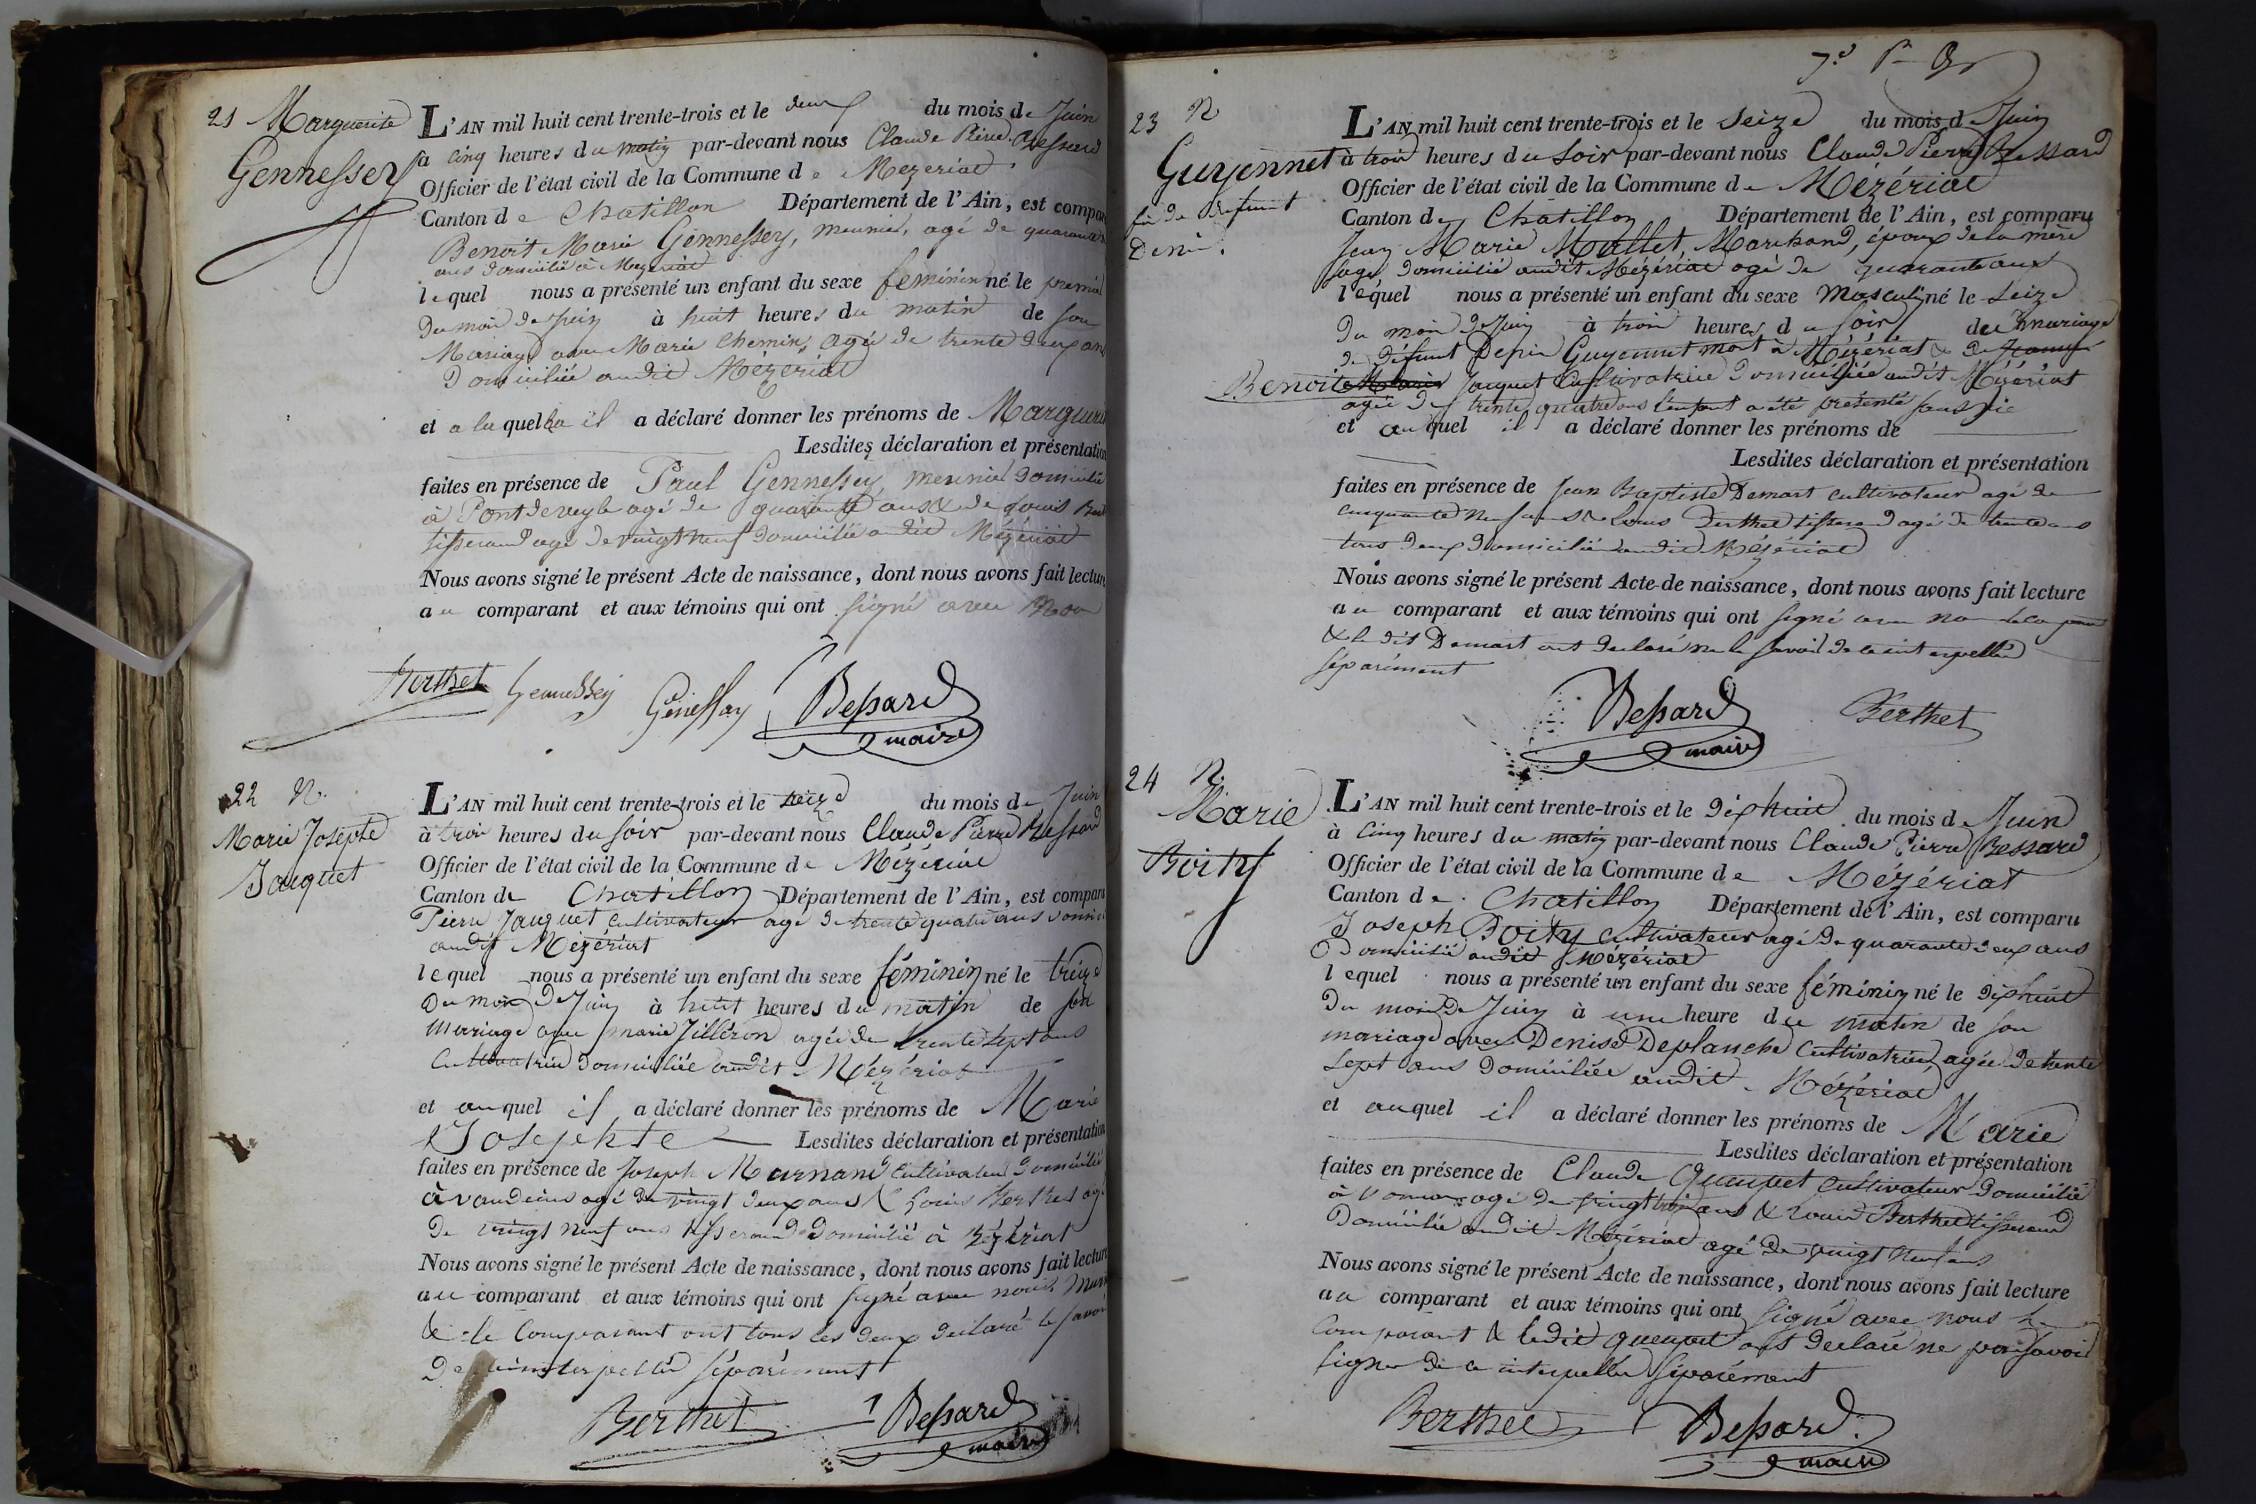 21 Marguerite
Gennessey
L'AN mil huit cent trente-trois et le deux du mois de Juin
à cinq heures du matin par-devant nous Claude Pierre Bessard
Officier de l'état civil de la Commune de Mezeriat
Canton de Chatillon Département de l'Ain, est comparu
Benoit Marie Gennessey, meunier, agé de quarante
ans domicilié à Mezeriat
lequel nous a présenté un enfant du sexe féminin né le premier
du mois de Juin à huit heures du matin de son
Mariage avec Marie Chemin, agée de trente deux ans
domiciliée audit Mézériat
et a la quelle il a déclaré donner les prénoms de Marguerite
Lesdites déclaration et présentation
faites en présence de Paul Gennessey, meunier domicilié
à Pontdeveyle agé de quarante ans & de Louis Bert
tisserand agé de vingt neuf domicilié audit Mézériat
Nous avons signé le présent Acte de naissance, dont nous avons fait lecture
au comparant et aux témoins qui ont signé avec Nou
Berthet Gennessey Génessay Bessard
maire
22 N.
Marie Josephte
Jacquet
L'AN mil huit cent trente-trois et le treize du mois de Juin
à trois heures du soir par-devant nous Claude Pierre Bessard
Officier de l'état civil de la Commune de Mézériat
Canton de Chatillon Département de l'Ain, est comparu
Pierre Jacquet cultivateur agé de trente quatre ans domici
audit Mézériat
lequel nous a présenté un enfant du sexe féminin né le treize
du mois de Juin à huit heures du matin de son
mariage avec marie Jilléron agée de trente sept ans
Cultivatrice domiciliée audit Mézériat
et au quel il a déclaré donner les prénoms de Marie
Josephte Lesdites déclaration et présentation
faites en présence de Joseph Marnand cultivateur domicilié
à vandeins agé de vingt deux ans & Louis Berthet agé
de vingt neuf ans tisserand domicilié à Mézériat
Nous avons signé le présent Acte de naissance, dont nous avons fait lecture
au comparant et aux témoins qui ont signé avec nous. Marn
& le Comparant ont tous les deux déclaré le savoir
de ce interpellés séparément
Berthet Bessard
maire
7.e
23 N
Guyennet
fu de défunt
Denis.
L'AN mil huit cent trente-trois et le seize du mois de Juin
à trois heures du Soir par-devant nous Claude Pierre Bessard
Officier de l'état civil de la Commune de Mézériat
Canton de Chatillon Département de l'Ain, est comparu
Jean Marie Mallet, Marchand, époux de la mère
agée domicilié audit Mézériat agé de quarante ans
lequel nous a présenté un enfant du sexe Masculin né le Seize
du mois de Juin à trois heures du soir du mariage
de défunt Denis Guyennet mort à Mézériat & de Jeanne
Benoite Marie Jacquet Cultivatrice domiciliée audit Mézériat
agée de trente quatre ans l'enfant a été présenté sans vie
et au quel il a déclaré donner les prénoms de
Lesdites déclaration et présentation
faites en présence de Jean Baptiste Demart cultivateur agé de
cinquante neuf ans & Louis Berthet tisserand agé de trente ans
tous deux domiciliés audit Mézériat
Nous avons signé le présent Acte de naissance, dont nous avons fait lecture
au comparant et aux témoins qui ont signé avec no
& le dit Demart ont déclaré ne le savoir de ce interpellés
séparément
Bessard Berthet
maire
24 N.
Marie
Boity
L'AN mil huit cent trente-trois et le dix huit du mois de Juin
à cinq heures du matin par-devant nous Claude Pierre Bessard
Officier de l'état civil de la Commune de Mézériat
Canton de Chatillon Département de l'Ain, est comparu
Joseph Boity cultivateur agé de quarante deux ans
Domicilié audit Mézériat
lequel nous a présenté un enfant du sexe féminin né le dix huit
du mois de Juin à une heure du matin de son
mariage avec Denise Deplanche Cultivatrice agée de trente
sept ans domiciliée audit Mézériat
et au quel il a déclaré donner les prénoms de Marie
Lesdites déclaration et présentation
faites en présence de Claude Queupet cultivateur domicilié
à Vonnas agé de vingt trois ans & Louis Berthet tisserand
domicilié audit Mézériat agé de vingt neuf ans
Nous avons signé le présent Acte de naissance, dont nous avons fait lecture
au comparant et aux témoins qui ont signé avec nous le
Comparant & ledit queupet ont déclaré ne pas savoir
signer de ce interpellés séparément
Berthet Bessard.
maire